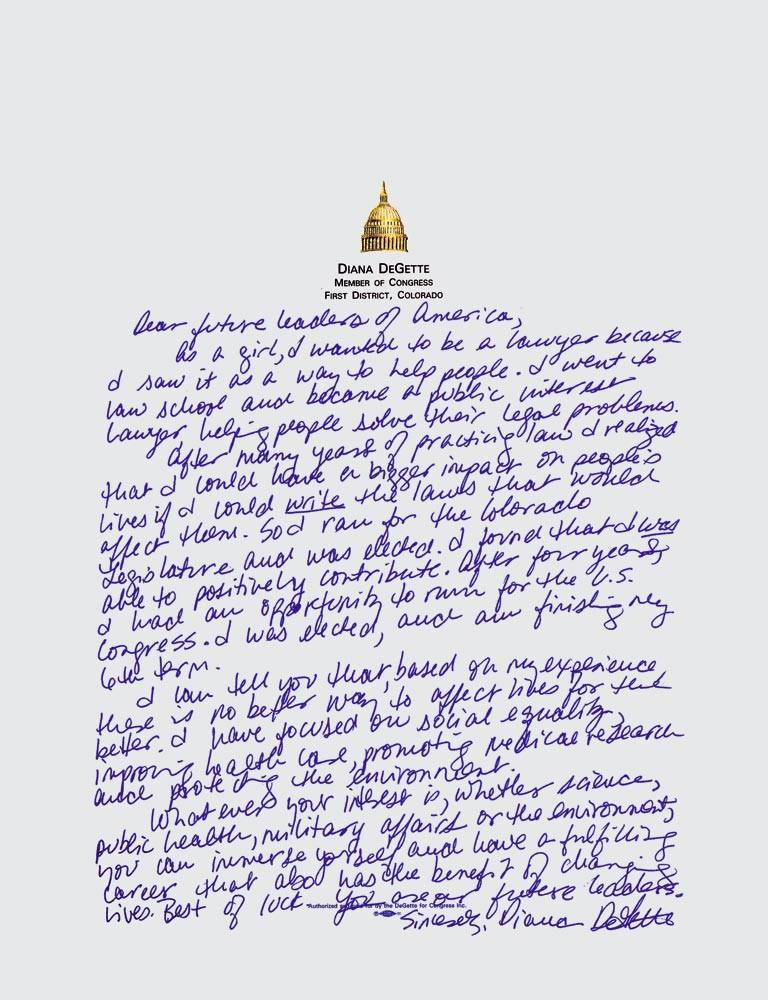 DIANA DEGETTE
MEMBER OF CONGRESS
FIRST DISTRICT, COLORADO
Dear future leaders of America,
As a girl, I wanted to be a lawyer because
I saw it as a way to help people. I went to
law school and became a public interest
lawyer helping people solve their legal problems.
After many years of practicing law I realized
that I could have a bigger impact on people's
lives if I could write the laws that would
affect them. So I ran for the Colorado
Legislature and was elected. I found that I was
able to positively contribute. After four years,
I had an opportunity to run for the U.S.
Congress. I was elected, and am finishing my
6th term.
I can tell you that, based on my experience
there is no better way to affect lives for the
better. I have focused on social equality,
improving health care, promoting medical research
and protecting the environment.
Whatever your interest is, whether science,
public health, military affairs or the environment,
you can immerse yourself and have a fulfilling
career that also has the benefit of changing
lives. Best of luck. You are our future leaders.
Authorized and paid for by the DeGette for Congress Inc.
Sincerely, Diana DeGette